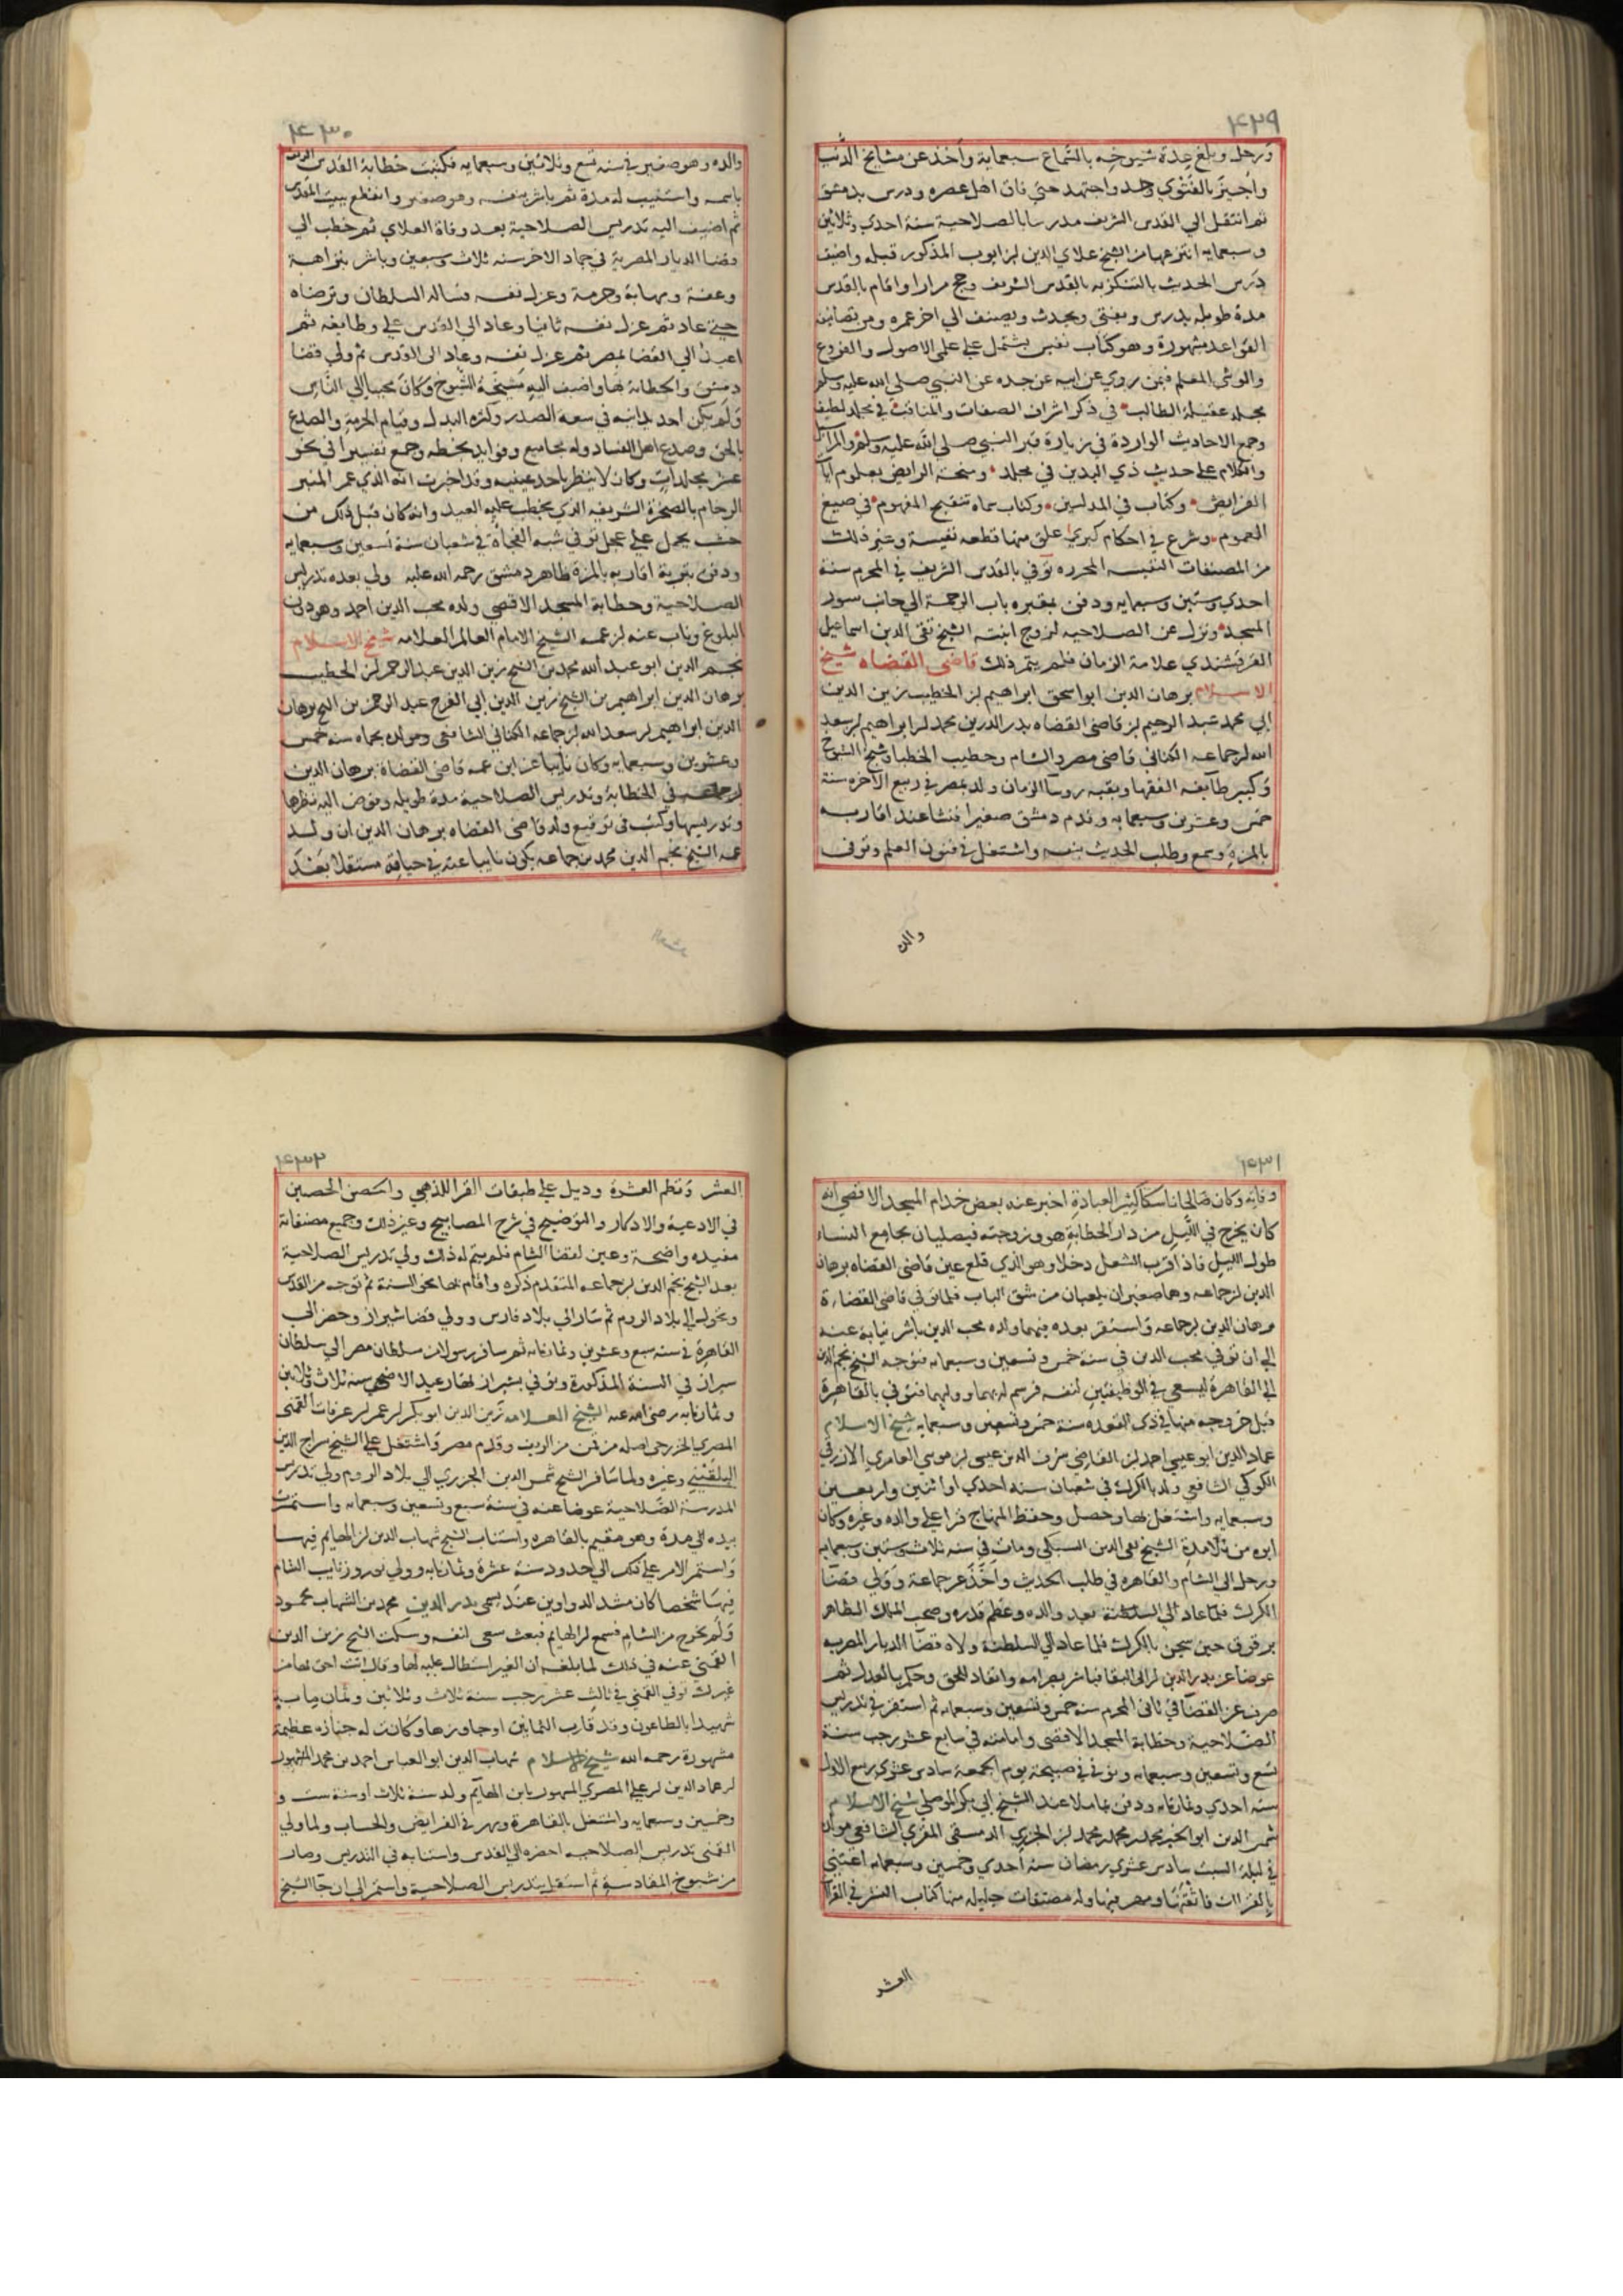 ٤٢٩
ورحل وبلغ عدة شيوخه بالسماع سبعماية وأخذ عن مشايخ الدنيا
وأجيز بالفتوي وجد واجتهد حتي فاق اهل عصره ودرس بدمشق
ثم انتقل الي القدس الشريف مدرسا بالصلاحية سنة احدي وثلاثين
وسبعمايه انتزعها من الشيخ علاي الدين بن ايوب المذكور قبله واضيف
درس الحديث بالتنكزيه بالقدس الشريف وحج مرارا واقام بالقدس
مدة طويله يدرس ويفتي ويحدث ويصنف الي اخر عمره ومن تصانيفه
القواعد مشهورة وهو كتاب نفيس يشتمل علي علمي الاصول والفروع
والوشي المعلم فيمن روي عن ابيه عن جده عن النبي صلي الله عليه وسلم
مجلد عقيلة الطالب في ذكر اشراف الصفات والمناقب في مجلد لطيف
وجمع الاحاديث الواردة في زيارة قبر النبي صلي الله عليه وسلم والمراسيل
والكلام علي حديث ذي اليدين في مجلد ومنحة الرايض بعلوم ايات
الفرايض وكتاب في المدلسين وكتاب سماه تنقيح المفهوم في صيغ
العموم وشرع في احكام كبري علق منها قطعه نفيسة وغير ذلك
من المصنفات النفيسه المحرره توفي بالقدس الشريف في المحرم سنة
احدي وستين وسبعمايه ودفن بمقبره باب الرحمة الي جانب سور
المسجد ونزل عن الصلاحيه لزوج ابنته الشيخ تقي الدين اسماعيل
القرقشندي علامة الزمان فلم يتم ذلك قاضي القضاه شيخ
الاسلام برهان الدين ابو اسحق ابراهيم بن الخطيب زين الدين
ابي محمد عبد الرحيم بن قاضي القضاه بدر الدين محمد بن ابراهيم بن سعد
الله بن جماعه الكناني قاضي مصر والشام وخطيب الخطبا وشيخ الشيوخ
وكبير طايفه الفقها وبقيه روسا الزمان ولد بمصر في ربيع الاخر سنة
خمس وعشرين وسبعمايه وقدم دمشق صغيرا فنشا عند اقاربه
بالمزة وسمع وطلب الحديث بنفسه واشتغل في فنون العلم وتوفي
والده
٤٣٠
والده وهو صغير في سنه تسع وثلاثين وسبعمايه فكتبت خطابة القدس الشريف
باسمه واستنيب له مدة ثم باشر بنفسه وهو صغير وانقطع ببيت المقدس
ثم اضيف اليه تدريس الصلاحية بعد وفاة العلاي ثم خطب الي
قضا الديار المصرية في جماد الاخر سنه ثلاث وسبعين وباشر بنزاهة
وعفة ومهابة وحرمة وعزل نفسه فساله السلطان وترضاه
حتي عاد ثم عزل نفسه ثانيا وعاد الي القدس علي وظايفه ثم
اعيد الي القضا بمصر ثم عزل نفسه وعاد الي القدس ثم ولي قضا
دمشق والخطابة بها واضيف اليه مشيخة الشيوخ وكان محببا الي الناس
ولم يكن احد يدانيه في سعة الصدر وكثرة البذل وقيام الحرمة والصدع
بالحق وصدع اهل الفساد وله مجاميع وفوايد بخطه وجمع تفسيرا في نحو
عشر مجلدات وكان لا ينظر باحد عينيه وقد اخبرت انه الذي عمر المنبر
الرخام بالصخرة الشريفه الذي يخطب عليه العيد وانه كان قبل ذلك من
خشب يحمل علي عجل توفي شبه الفجأة في شعبان سنة تسعين وسبعمايه
ودفن بتربة اقاربه بالمزة ظاهر دمشق رحمه الله عليه ولي بعده تدريس
الصلاحية وخطابة المسجد الاقصي ولده محب الدين احمد وهو دون
البلوغ وناب عنه ابن عمه الشيخ الامام العالم العلامه شيخ الاسلام
نجم الدين ابو عبد الله محمد بن الشيخ زين الدين عبد الرحمن بن الخطيب
برهان الدين ابراهيم بن الشيخ زين الدين ابي الفرج عبد الرحمن بن الشيخ برهان
الدين ابراهيم بن سعد الله بن جماعه الكناني الشافعي ومولده بحماه سنه خمس
وعشرين وسبعمايه وكان نايبا عن ابن عمه قاضي القضاة برهان الدين
بن جماعه في الخطابة وتدريس الصلاحية مدة طويله وفوض اليه نظرها
وتدريسها وكتب في توقيع ولد قاضي القضاه برهان الدين ان ولد
عمه الشيخ نجم الدين محمد بن جماعه يكون نايبا عنه في حياته مستقلا بعد
٤٣١
وفاته وكان صالحا ناسكا كثير العبادة اخبر عنه بعض خدام المسجد الاقصي انه
كان يخرج في الليل من دار الخطابة هو وزوجته فيصليان بجامع النساء
طول الليل فاذا قرب الشعل دخلا وهو الذي قلع عين قاضي القضاه برهان
الدين بن جماعه وهما صغيران يلعبان من شق الباب فلما توفي قاضي القضاة
برهان الدين بن جماعه واستقر بعده فيهما ولده محب الدين باشر نيابة عنه
الي ان توفي محب الدين في سنة خمس وتسعين وسبعمايه فتوجه الشيخ نجم الدين
الي القاهرة ليسعي في الوظيفتين لنفسه فرسم له بهما ووليهما فتوفي بالقاهرة
قبل خروجه منها في ذي القعده سنة خمس وتسعين وسبعمايه شيخ الاسلام
عماد الدين ابو عيسي احمد بن القاضي شرف الدين عيسي بن موسي العامري الازرقي
الكركي الشافعي ولد بالكرك في شعبان سنه احدي او اثنين واربعين
وسبعمايه واشتغل بها وحصل وحفظ المنهاج قرا علي والده وغيره وكان
ابوه من تلامذة الشيخ تقي الدين السبكي ومات في سنه ثلاث وستين وسبعمايه
ورحل الي الشام والقاهره في طلب الحديث واخذ عن جماعة وولي قضا
الكرك فلما عاد الي السلطنة بعد والده وعظم قدره وصحب الملك الظاهر
برقوق حين سجن بالكرك فلما عاد الي السلطنة ولاه قضا الديار المصريه
عوضا عن بدر الدين بن ابي البقا فباشر بصرامه وانقاد للحق وحكم بالعدل ثم
صرف عن القضا في ثاني المحرم سنه خمس وتسعين وسبعمايه ثم استقر في تدريس
الصلاحية وخطابة المسجد الاقصي وامامته في سابع عشر رجب سنة
تسع وتسعين وسبعمايه وتوفي في صبيحة يوم الجمعه سادس عشري ربيع الاول
سنه احدي وثمانمايه ودفن بماملا عند الشيخ ابي بكر الموصلي شيخ الاسلام
شمس الدين ابو الخير محمد بن محمد بن محمد بن الجزري الدمشقي المقري الشافعي مولده
في ليلة السبت سادس عشري رمضان سنه احدي وخمسين وسبعمايه اعتني
بالقراات فاتقنها ومهر فيها وله مصنفات جليله منها كتاب النشر في القراات
العشر
٤٣٢
العشر ونظم العشرة وذيل علي طبقات القرا للذهبي والحصن الحصين
في الادعية والاذكار والتوضيح في شرح المصابيح وغير ذلك وجميع مصنفاته
مفيده واضحة وعين لقضا الشام فلم يتم له ذلك ولي تدريس الصلاحية
بعد الشيخ نجم الدين بن جماعه المتقدم ذكره واقام بها نحو السنة ثم توجه من القدس
وتحول الي بلاد الروم ثم سار الي بلاد فارس وولي قضا شيراز وحضر الي
القاهرة في سنه سبع وعشرين وثمانمايه ثم سافر رسولا من سلطان مصر الي سلطان
شيراز في السنة المذكورة وتوفي بشيراز نهار عيد الاضحي سنه ثلاث وثلاثين
وثمانمايه رضي الله عنه الشيخ العلامه زين الدين ابو بكر بن عمر بن عرفات القمني
المصري الخزرجي اصله من قمن من الريف وقدم مصر واشتغل علي الشيخ سراج الدين
البلقيني وغيره ولما سافر الشيخ شمس الدين الجزري الي بلاد الروم ولي تدريس
المدرسة الصلاحية عوضا عنه في سنة سبع وتسعين وسبعمايه واستمرت
بيده الي مدة وهو مقيم بالقاهره واستناب الشيخ شهاب الدين بن الهايم فيها
واستمر الامر علي ذلك الي حدود سنة عشرة وثمانمايه وولي نوروز نايب الشام
فيها شخصا كان مشد الدواوين عنده يسمي بدر الدين محمد بن الشهاب محمود
ولم يخرج من الشام فسمع ابن الهايم فبعث سعي لنفسه وسكت الشيخ زين الدين
القمني عنه في ذلك لما بلغه ان الغير استطال عليه لها وقال انت احق بها من
غيرك توفي القمني في ثالث عشر رجب سنة ثلاث وثلاثين وثمانمايه
شهيدا بالطاعون وقد قارب الثمانين او جاوزها وكانت له جنازه عظيمة
مشهورة رحمه الله شيخ الاسلام شهاب الدين ابو العباس احمد بن محمد المشهور
بن عماد الدين بن علي المصري المشهور بابن الهايم ولد سنة ثلاث او سنة ست و
وخمسين وسبعمايه واشتغل بالقاهرة ومهر في الفرايض والحساب ولما ولي
القمني تدريس الصلاحيه احضره الي القدس واستنابه في التدريس وصار
من شيوخ المقادسة ثم استقل بتدريس الصلاحية واستمر الي ان جا الشيخ